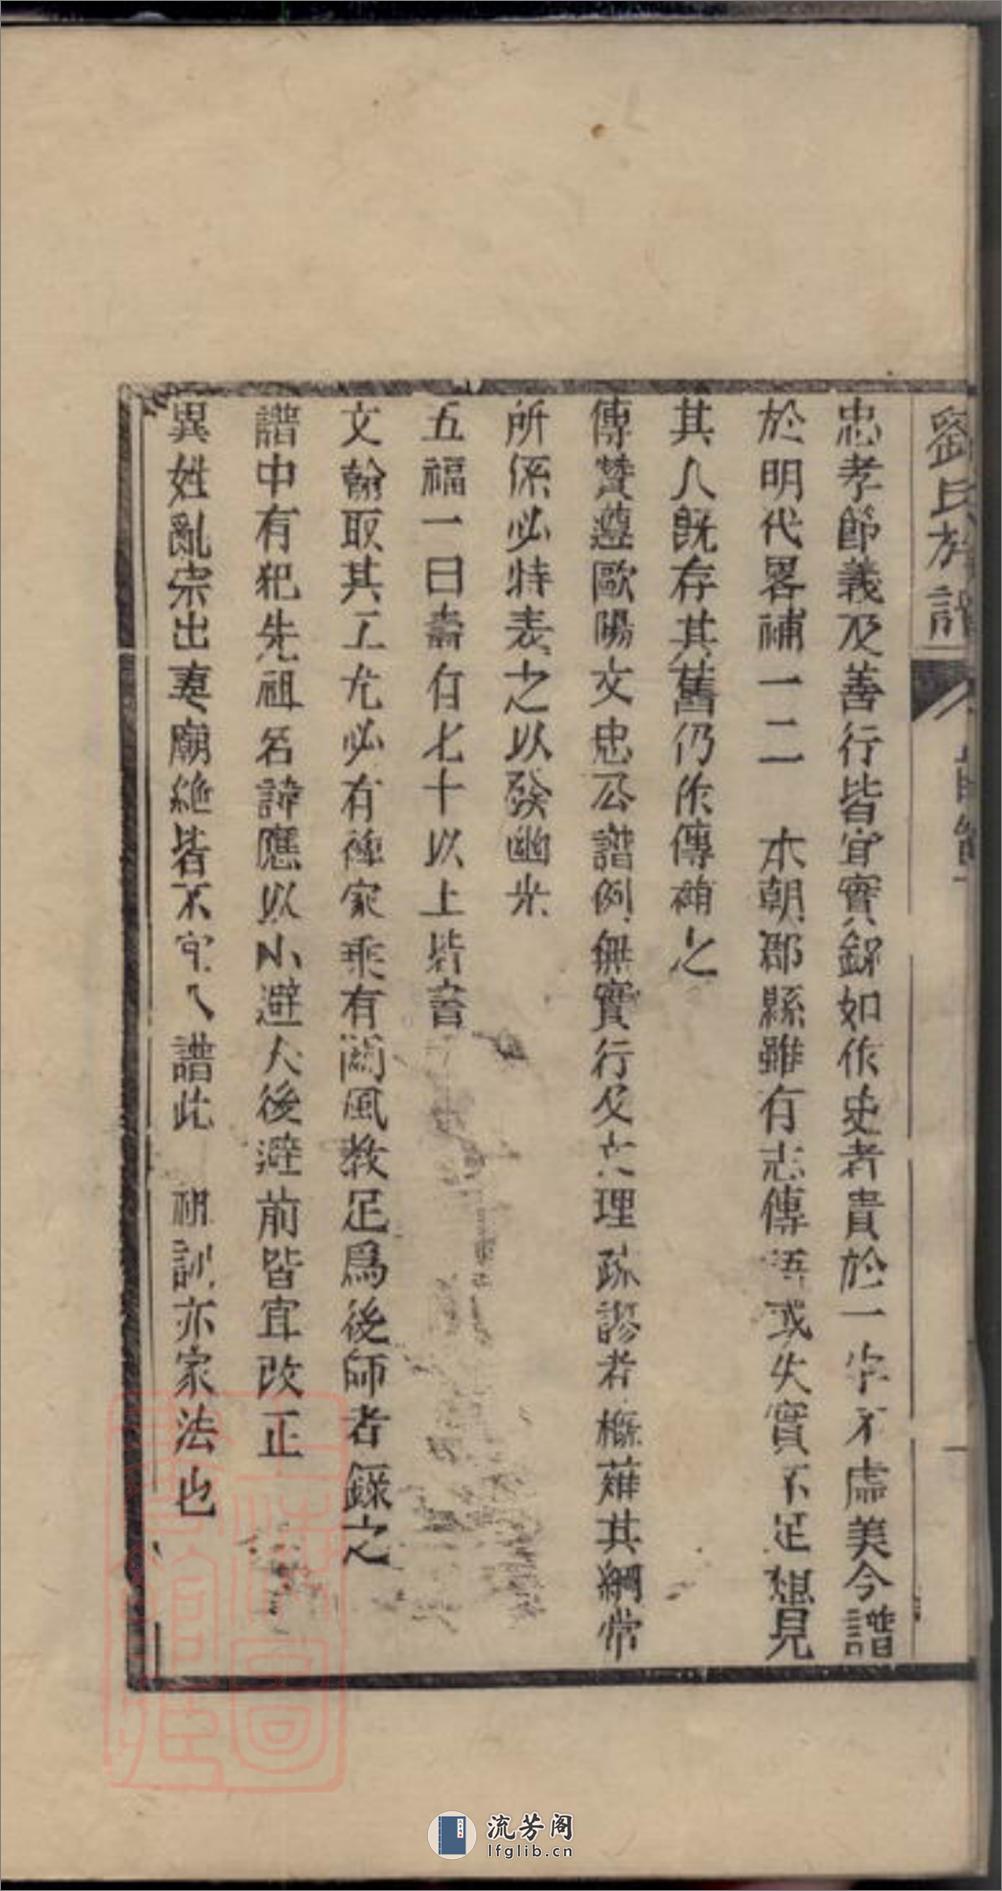 劉氏族譜
首卷
一
忠孝節義及善行皆宜實錄如作史者貴於一字不虛美今譜
於明代畧補一二　本朝郡縣雖有志傳語或失實不足想見
其人既存其舊仍作傳補之
傳贊遵歐陽文忠公譜例無實行及文理疏謬者概薙其綱常
所係必特表之以發幽光
五福一曰壽自七十以上皆書
文翰取其工尤必有裨家乘有關風教足爲後師者錄之
譜中有犯先祖名諱應以小避大後避前皆宜改正
異姓亂宗出妻廟絶皆不宜入譜此　祖訓亦家法也
上海圖書館藏
流芳阁
lfglib.cn